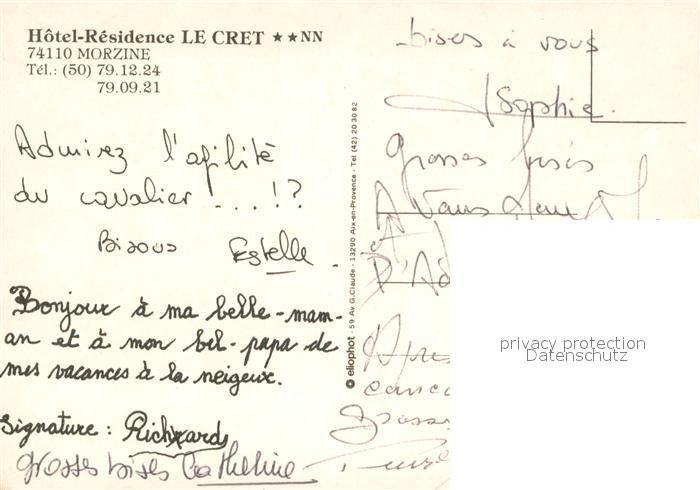 Hôtel-Résidence LE CRET ★★NN
74110 MORZINE
Tél.: (50) 79.12.24
79.09.21
Admirez l'agilité
du cavalier ... !?
Bisous Estelle.
Bonjour à ma belle-mam-
an et à mon bel-papa de
mes vacances à la neigeux.
Signature : Richard
grosses bises Catherine
eliophot - 59 Av G.Claude - 13290 Aix-en-Provence - Tel (42) 20 30 82
bises à vous
Sophie.
Grosses bises
A
D'Ad
Apres
privacy protection
Datenschutz